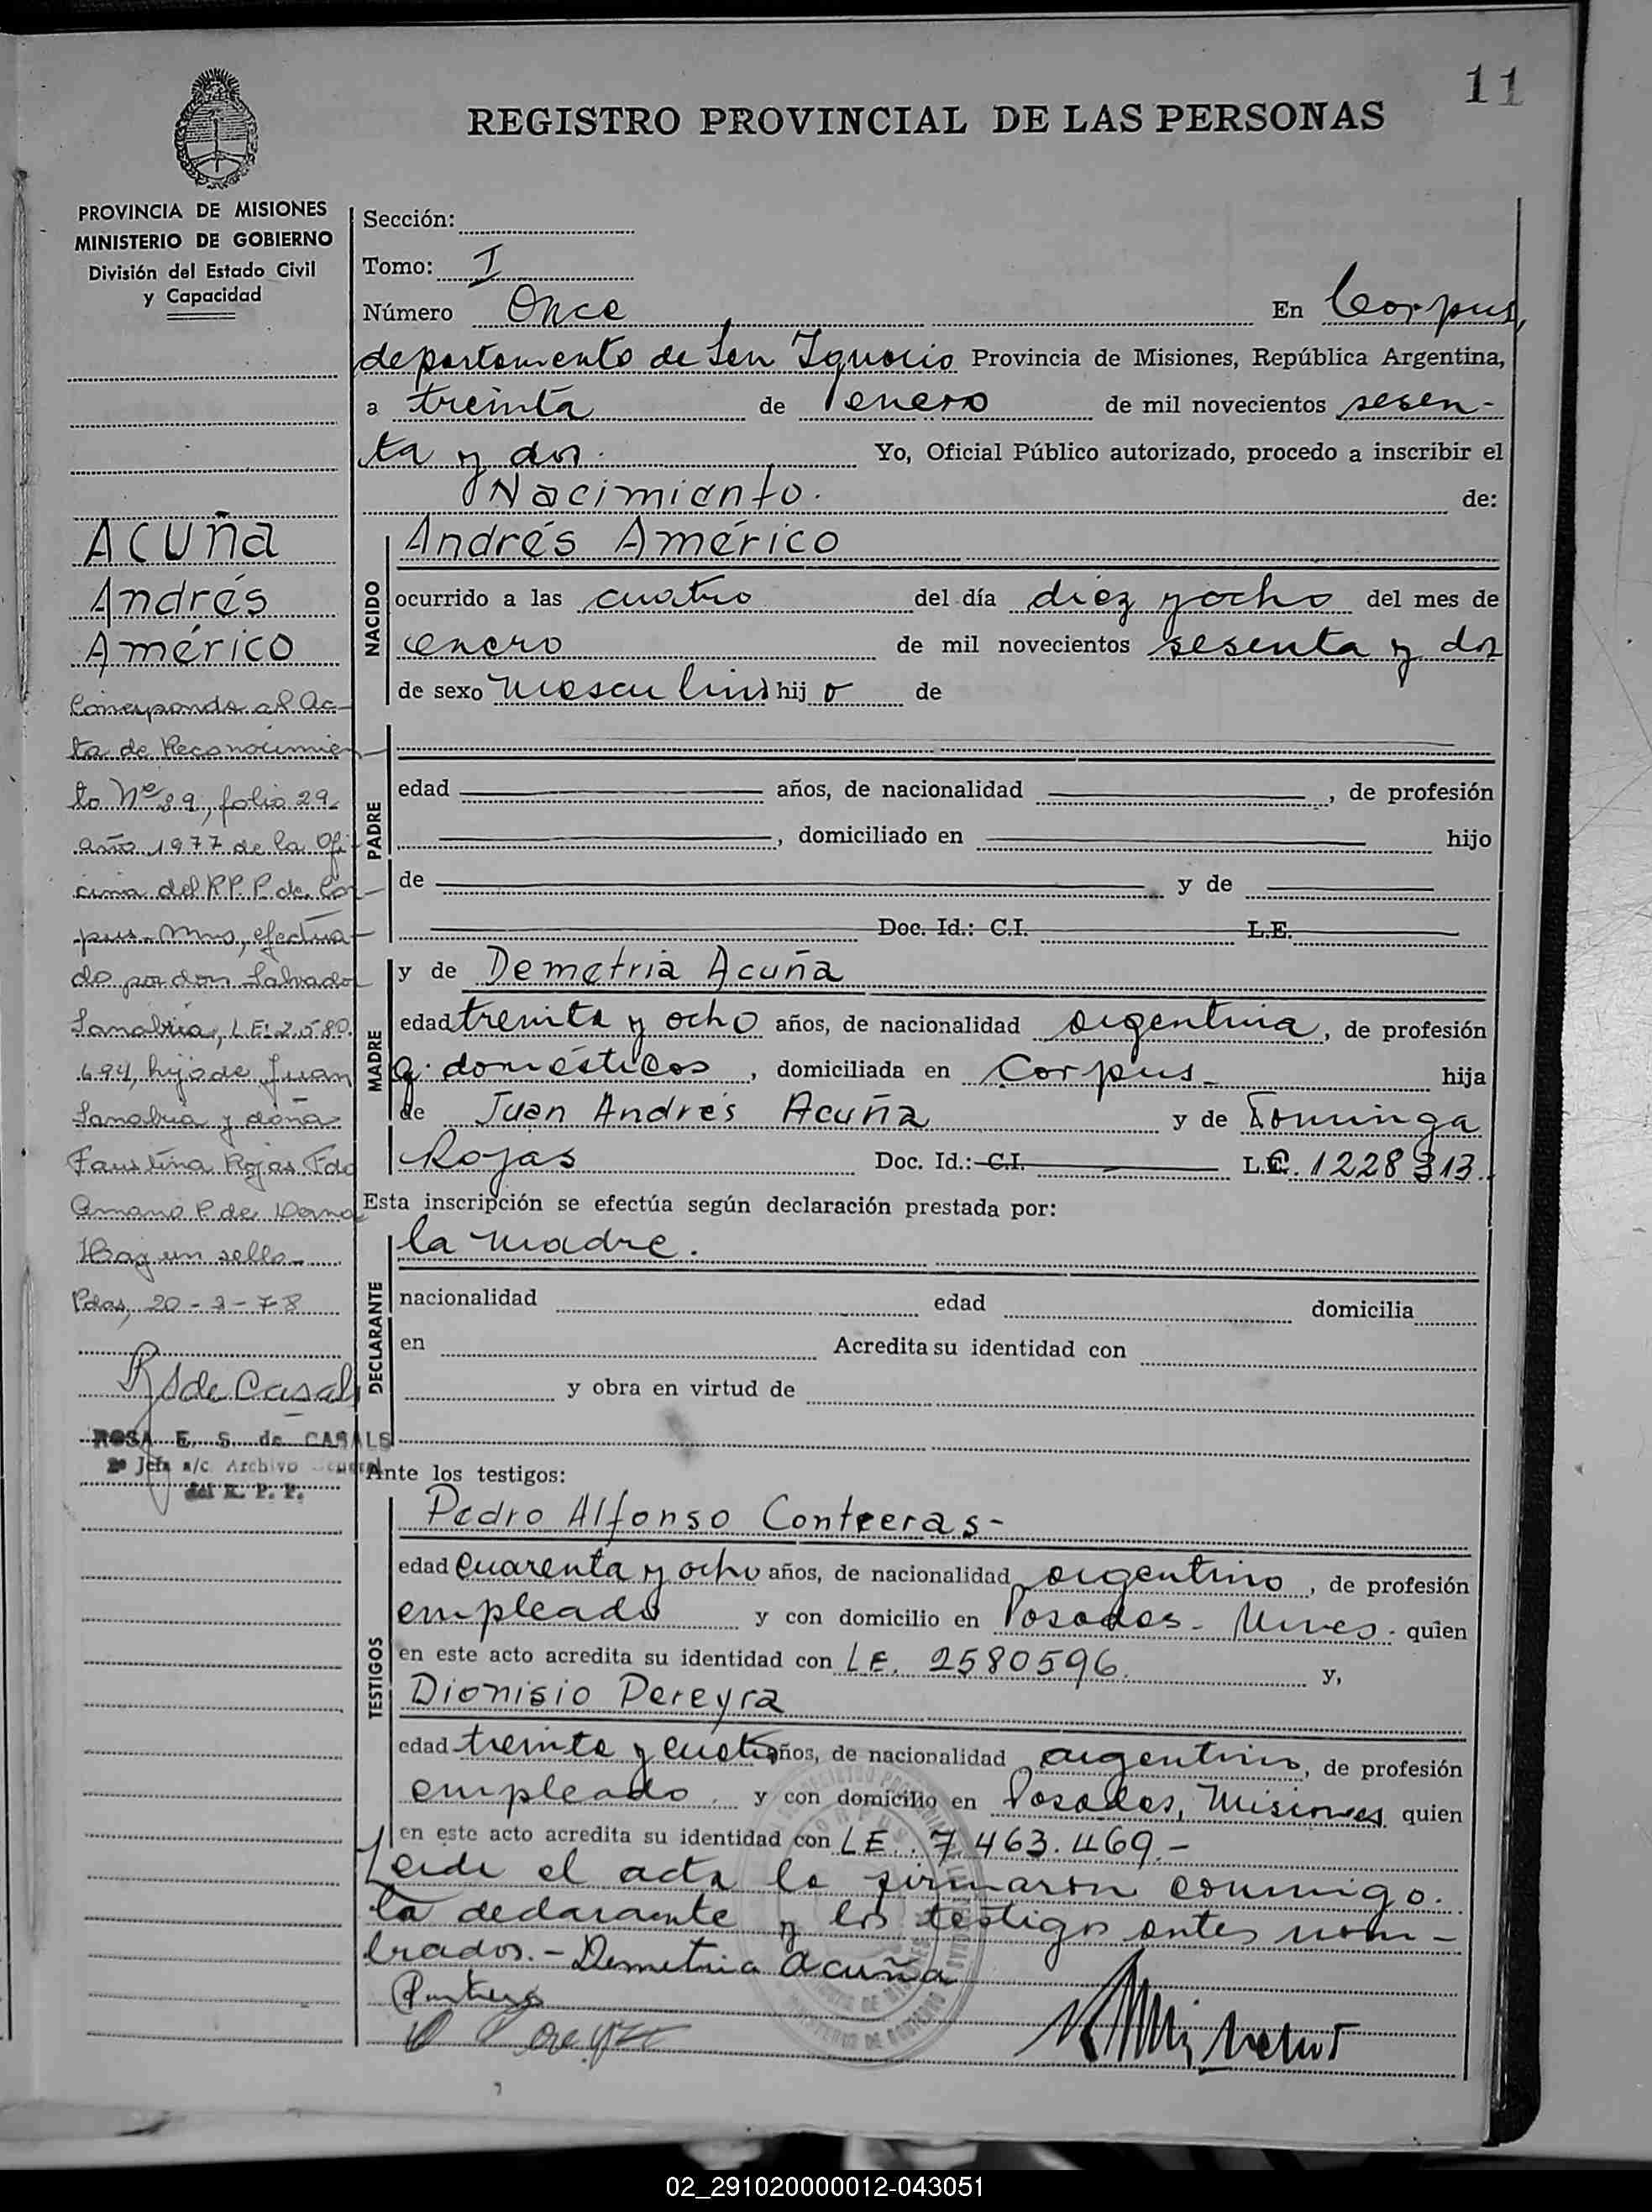 11
REGISTRO PROVINCIAL DE LAS PERSONAS
PROVINCIA DE MISIONES
MINISTERIO DE GOBIERNO
División del Estado Civil
y Capacidad
ACUÑA
Andrés
Américo
Corresponde al Ac-
ta de Reconocimien
to Nº 29, folio 29
año 1977 de la Ofi
cina del R.P.P. de Cor-
pus-Mnes, efectua-
do por don Salvador
Sanabria, L.E. 2.580.
694, hijo de Juan
Sanabria y doña
Faustina Rojas. Fdo
P. de
Hay un sello-
Pdas, 20-3-78
R S de Casals
ROSA E. S. de CASALS
2º Jefa a/c. Archivo General
del R. P. P.
Sección:
Tomo: I
Número Once En Corpus,
departamento de San Ignacio Provincia de Misiones, República Argentina,
a treinta de enero de mil novecientos sesen-
ta y dos. Yo, Oficial Público autorizado, procedo a inscribir el
Nacimiento. de:
NACIDO
Andrés Américo
ocurrido a las cuatro del día diez y ocho del mes de
enero de mil novecientos sesenta y dos
de sexo masculino hij o de
PADRE
edad años, de nacionalidad , de profesión
, domiciliado en hijo
de y de
Doc. Id.: C.I. L.E.
MADRE
y de Demetria Acuña
edad treinta y ocho años, de nacionalidad argentina, de profesión
q. domésticos, domiciliada en Corpus- hija
de Juan Andrés Acuña y de Dominga
Rojas Doc. Id.: C.I. L.C. 1228313.
Esta inscripción se efectúa según declaración prestada por:
DECLARANTE
la madre.
nacionalidad edad domicilia
en Acredita su identidad con
y obra en virtud de
Ante los testigos:
TESTIGOS
Pedro Alfonso Contreras-
edad cuarenta y ocho años, de nacionalidad argentino, de profesión
empleado y con domicilio en Posadas- Mnes. quien
en este acto acredita su identidad con L.E. 2580596. y,
Dionisio Pereyra
edad treinta y cuatro años, de nacionalidad argentino, de profesión
empleado. y con domicilio en Posadas, Misiones quien
en este acto acredita su identidad con L.E. 7.463.469.-
Leida el acta la firmaron conmigo.
la declarante y los testigos antes nom-
brados.- Demetria Acuña
02_291020000012-043051